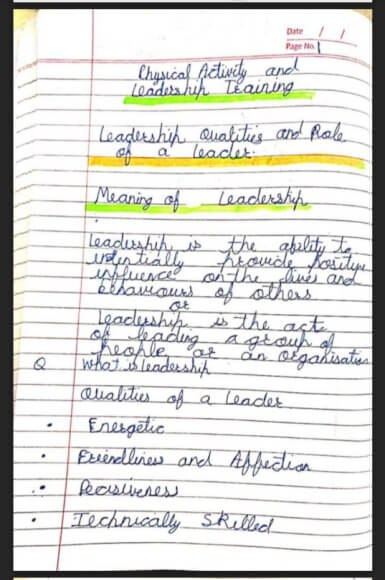 Date / /
Page No. 1
Physical Activity and
Leadership Training
Leadership Qualities and Role
of a leader.
Meaning of Leadership
Leadership is the ability to
intentially provide positive
influence on the lives and
behaviours of others
or
Leadership is the act
of leading a group of
people or an organisation
Q What is leadership
Qualities of a Leader
• Energetic
• Friendliness and Affection
• Decisiveness
• Technically Skilled